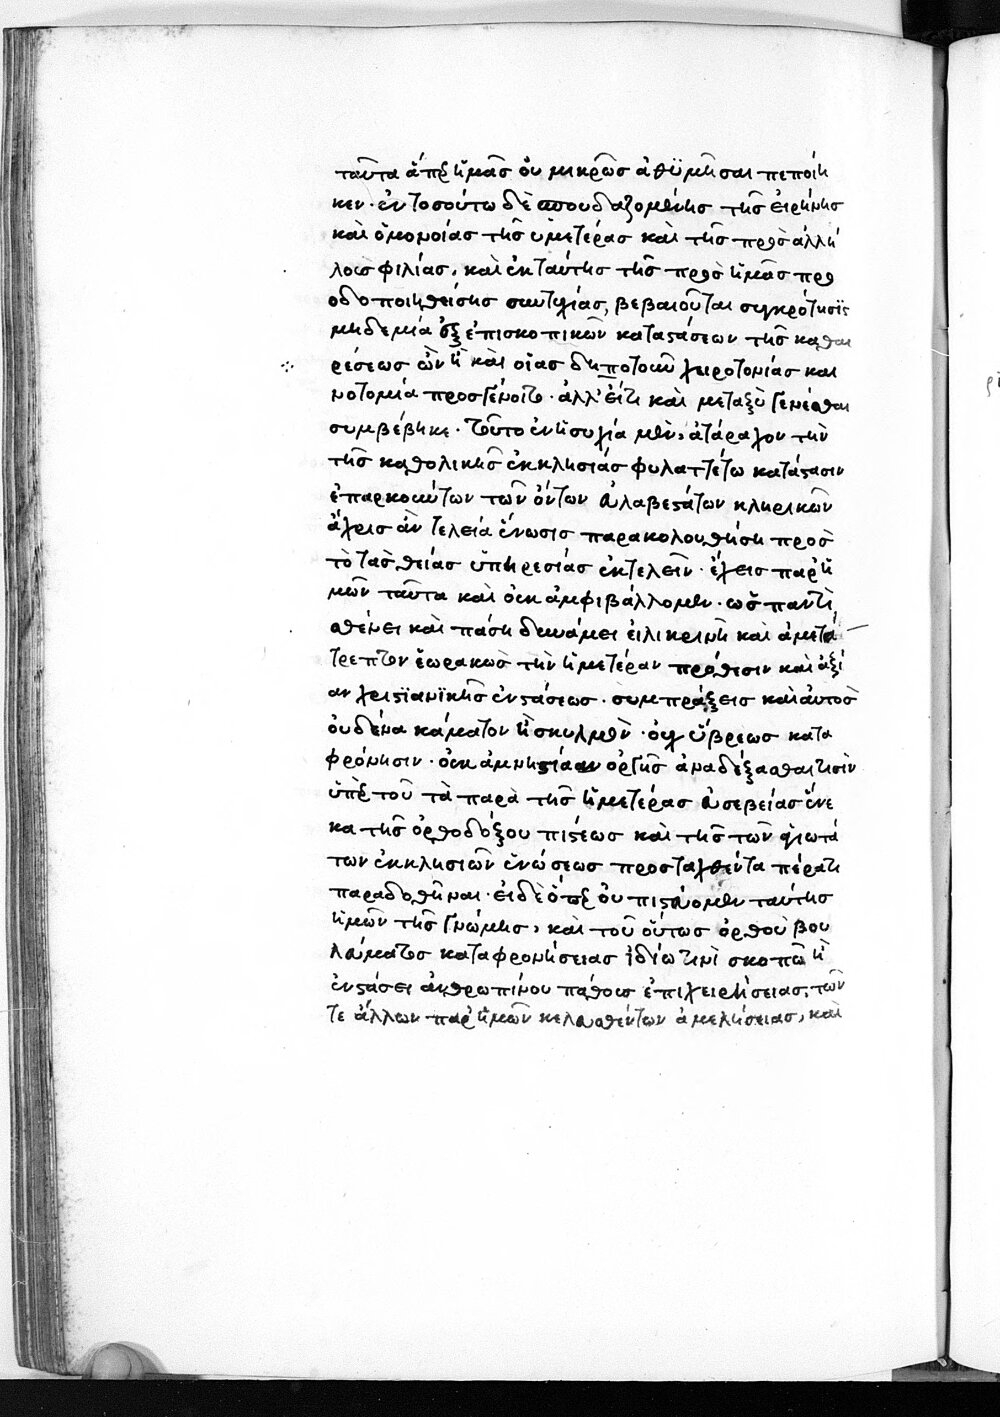 ταῦτα ἅπερ ἡμᾶς οὐ μικρῶς ἀθϋμῆσαι πεποίη
κεν· ἐν τοσούτω δὲ σπουδαζομένης τῆς εἰρήνης
καὶ ὁμονοίας τῆς ὑμετέρας καὶ τῆς πρὸς ἀλλή
λους φιλίας, καὶ ἐκ ταύτης τῆς πρὸς ἡμᾶς προ
οδοποιηθείσης συντυχίας, βεβαιοῦται συγκρότησϊς
μηδεμία ἐξ ἐπισκοπικῶν καταστάσεων τῆς καθαι
ρέσεως ὧν ἢ καὶ οἵας δηποτοῦν χειροτονίας και
νοτομία προσγένοιτο· ἀλλ' εἴτι καὶ μεταξὺ γενέσθαι
συμβέβηκε· τοῦτο ἐν ἡσυχία μὲν, ἀτάραχον τὴν
τῆς καθολικῆς ἐκκλησιάς φυλαττέτω κατάστασιν
ἐπαρκούντων τῶν ὄντων εὐλαβεστάτων κληρικῶν
ἄχρις ἂν τελεία ἕνωσις παρακολουθήση πρὸς
τὸ τὰς θείας ὑπηρεσίας ἐκτελεῖν· ἔχεις παρ' ἡ
μῶν ταῦτα καὶ οὐκ ἀμφιβάλλομεν· ὡς παντὶ
σθένει καὶ πάση δυνάμει εἰλικρινῆ καὶ ἀμετά
τρεπτον ἑωρακὼς τὴν ἡμετέραν πρόθεσιν καὶ ἀξί
αν χριστϊανϊκῆς ἐνστάσεως· συμπράξεις καὶ αὐτὸς
οὐδένα κάματον ἢ σκυλμὸν· οὐχ ὕβρεως κατα
φρόνησιν· οὐκ ἀμνηστίαν ὀργῆς ἀναδέξασθαι τισὶν
ὑπὲρ τοῦ τὰ παρὰ τῆς ἡμετέρας εὐσεβείας ἕνε
κα τῆς ὀρθοδόξου πίστεως καὶ τῆς τῶν ἁγιωτά
των ἐκκλησιῶν ἑνώσεως προσταχθέντα πέρατι
παραδοθῆναι· εἰ δὲ ὅπερ οὐ πιστεύομεν ταύτης
ἡμῶν τῆς γνώμης, καὶ τοῦ οὕτως ὀρθοῦ βου
λεύματος καταφρονήσειας ἰδίω τινὶ σκοπῶ ἢ
ἐνστάσει ἀνθρωπίνου πάθους ἐπιχειρήσειας, τῶν
τε ἄλλων παρ' ἡμῶν κελευσθέντων ἀμελήσειας, καὶ